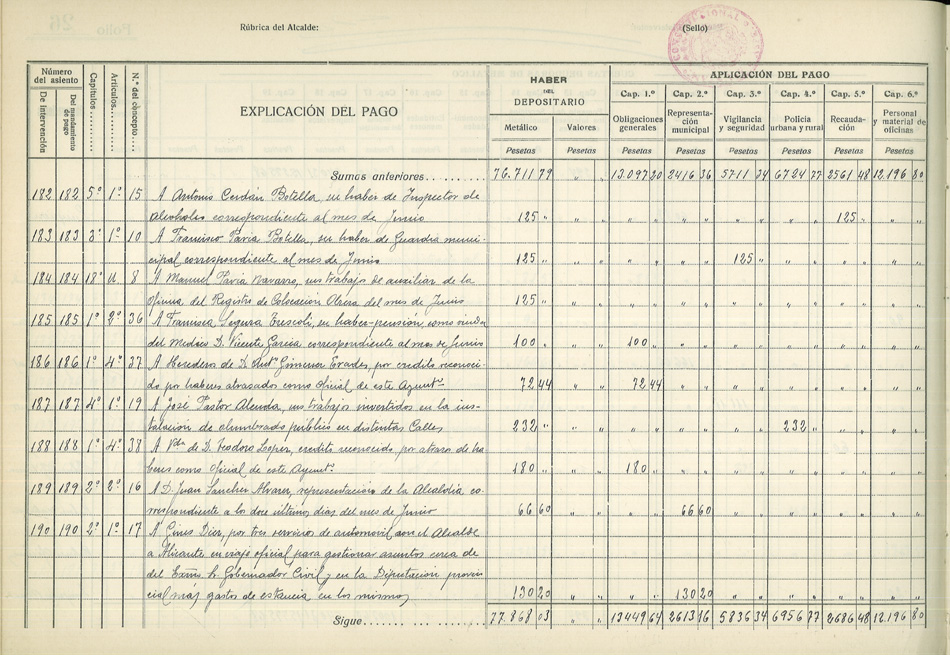 Rúbrica del Alcalde:
(Sello)
Número del asiento
De intervención
Del mandamiento de pago
Capítulos
Artículos
N.º del concepto
EXPLICACIÓN DEL PAGO
HABER DEL DEPOSITARIO
Metálico Valores
Pesetas Pesetas
APLICACIÓN DEL PAGO
Cap. 1.º Cap. 2.º Cap. 3.º Cap. 4.º Cap. 5.º Cap. 6.º
Obligaciones generales
Representación municipal
Vigilancia y seguridad
Policía urbana y rural
Recaudación
Personal y material de oficinas
Pesetas Pesetas Pesetas Pesetas Pesetas Pesetas
Sumas anteriores 76.711 79 " " 13.097 20 2416 36 5711 34 6724 77 2561 48 12.196 80
182 182 5º 1º 15 A Antonio Cerdán Botella, su haber de Inspector de
Alcoholes correspondiente al mes de Junio 125 " " " " " " " " " " " 125 " " "
183 183 3º 1º 10 A Francisco Pavia Botella, su haber de Guardia muni-
cipal correspondiente al mes de Junio 125 " " " " " " " 125 " " " " " " "
184 184 18º u 8 A Manuel Pavia Navarro, sus trabajos de auxiliar de la
oficina del Registro de Colocación Obrera del mes de Junio 125 " " " " " " " " " " " " " " "
185 185 1º 2º 36 A Francisca Segura Trescoli, su haber-pensión, como viuda
del Medico D. Vicente Garcia correspondiente al mes de Junio 100 " " " 100 " " " " " " " " " " "
186 186 1º 4º 37 A Herederos de D. Antº Gimenez Erades, por credito reconoci-
do por haberes atrasados como oficial de este Ayuntº 72 44 " " 72 44 " " " " " " " " " "
187 187 4º 1º 19 A José Pastor Alenda, sus trabajos invertidos en la ins-
talación de alumbrado publico en distintas Calles 232 " " " " " " " " " 232 " " " " "
188 188 1º 4º 38 A Vda de D. Teodoro Lopez, credito reconocido por atraso de ha
beres como oficial de este Ayuntº 180 " " " 180 " " " " " " " " " " "
189 189 2º 2º 16 A D. Juan Sanchez Alvarez, representación de la Alcaldia, co-
rrespondiente a los doce ultimos dias del mes de Junio 66 60 " " " " 66 60 " " " " " " " "
190 190 2º 1º 17 A Gines Diez, por tres servicios de automovil con el Alcalde
a Alicante en viaje oficial para gestionar asuntos cerca de
del Exmo. Sr. Gobernador Civil y en la Diputación provin
cial más gastos de estancia en los mismos 130 20 " " " " 130 20 " " " " " " " "
Sigue 77.868 03 " " 13449 64 2613 16 5836 34 6956 77 2686 48 12.196 80